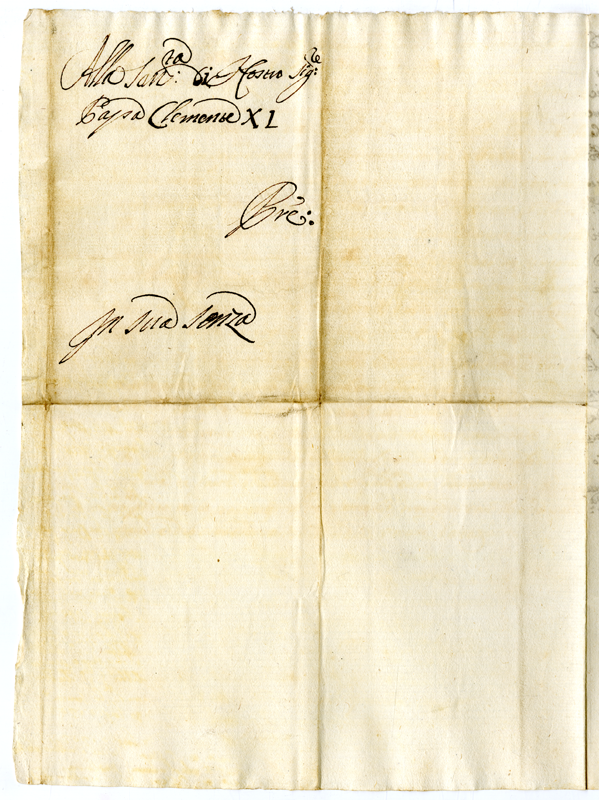 Alla San.ta di Nostro Sig.re
Papa Clemente XI
Pre:
In sua senza